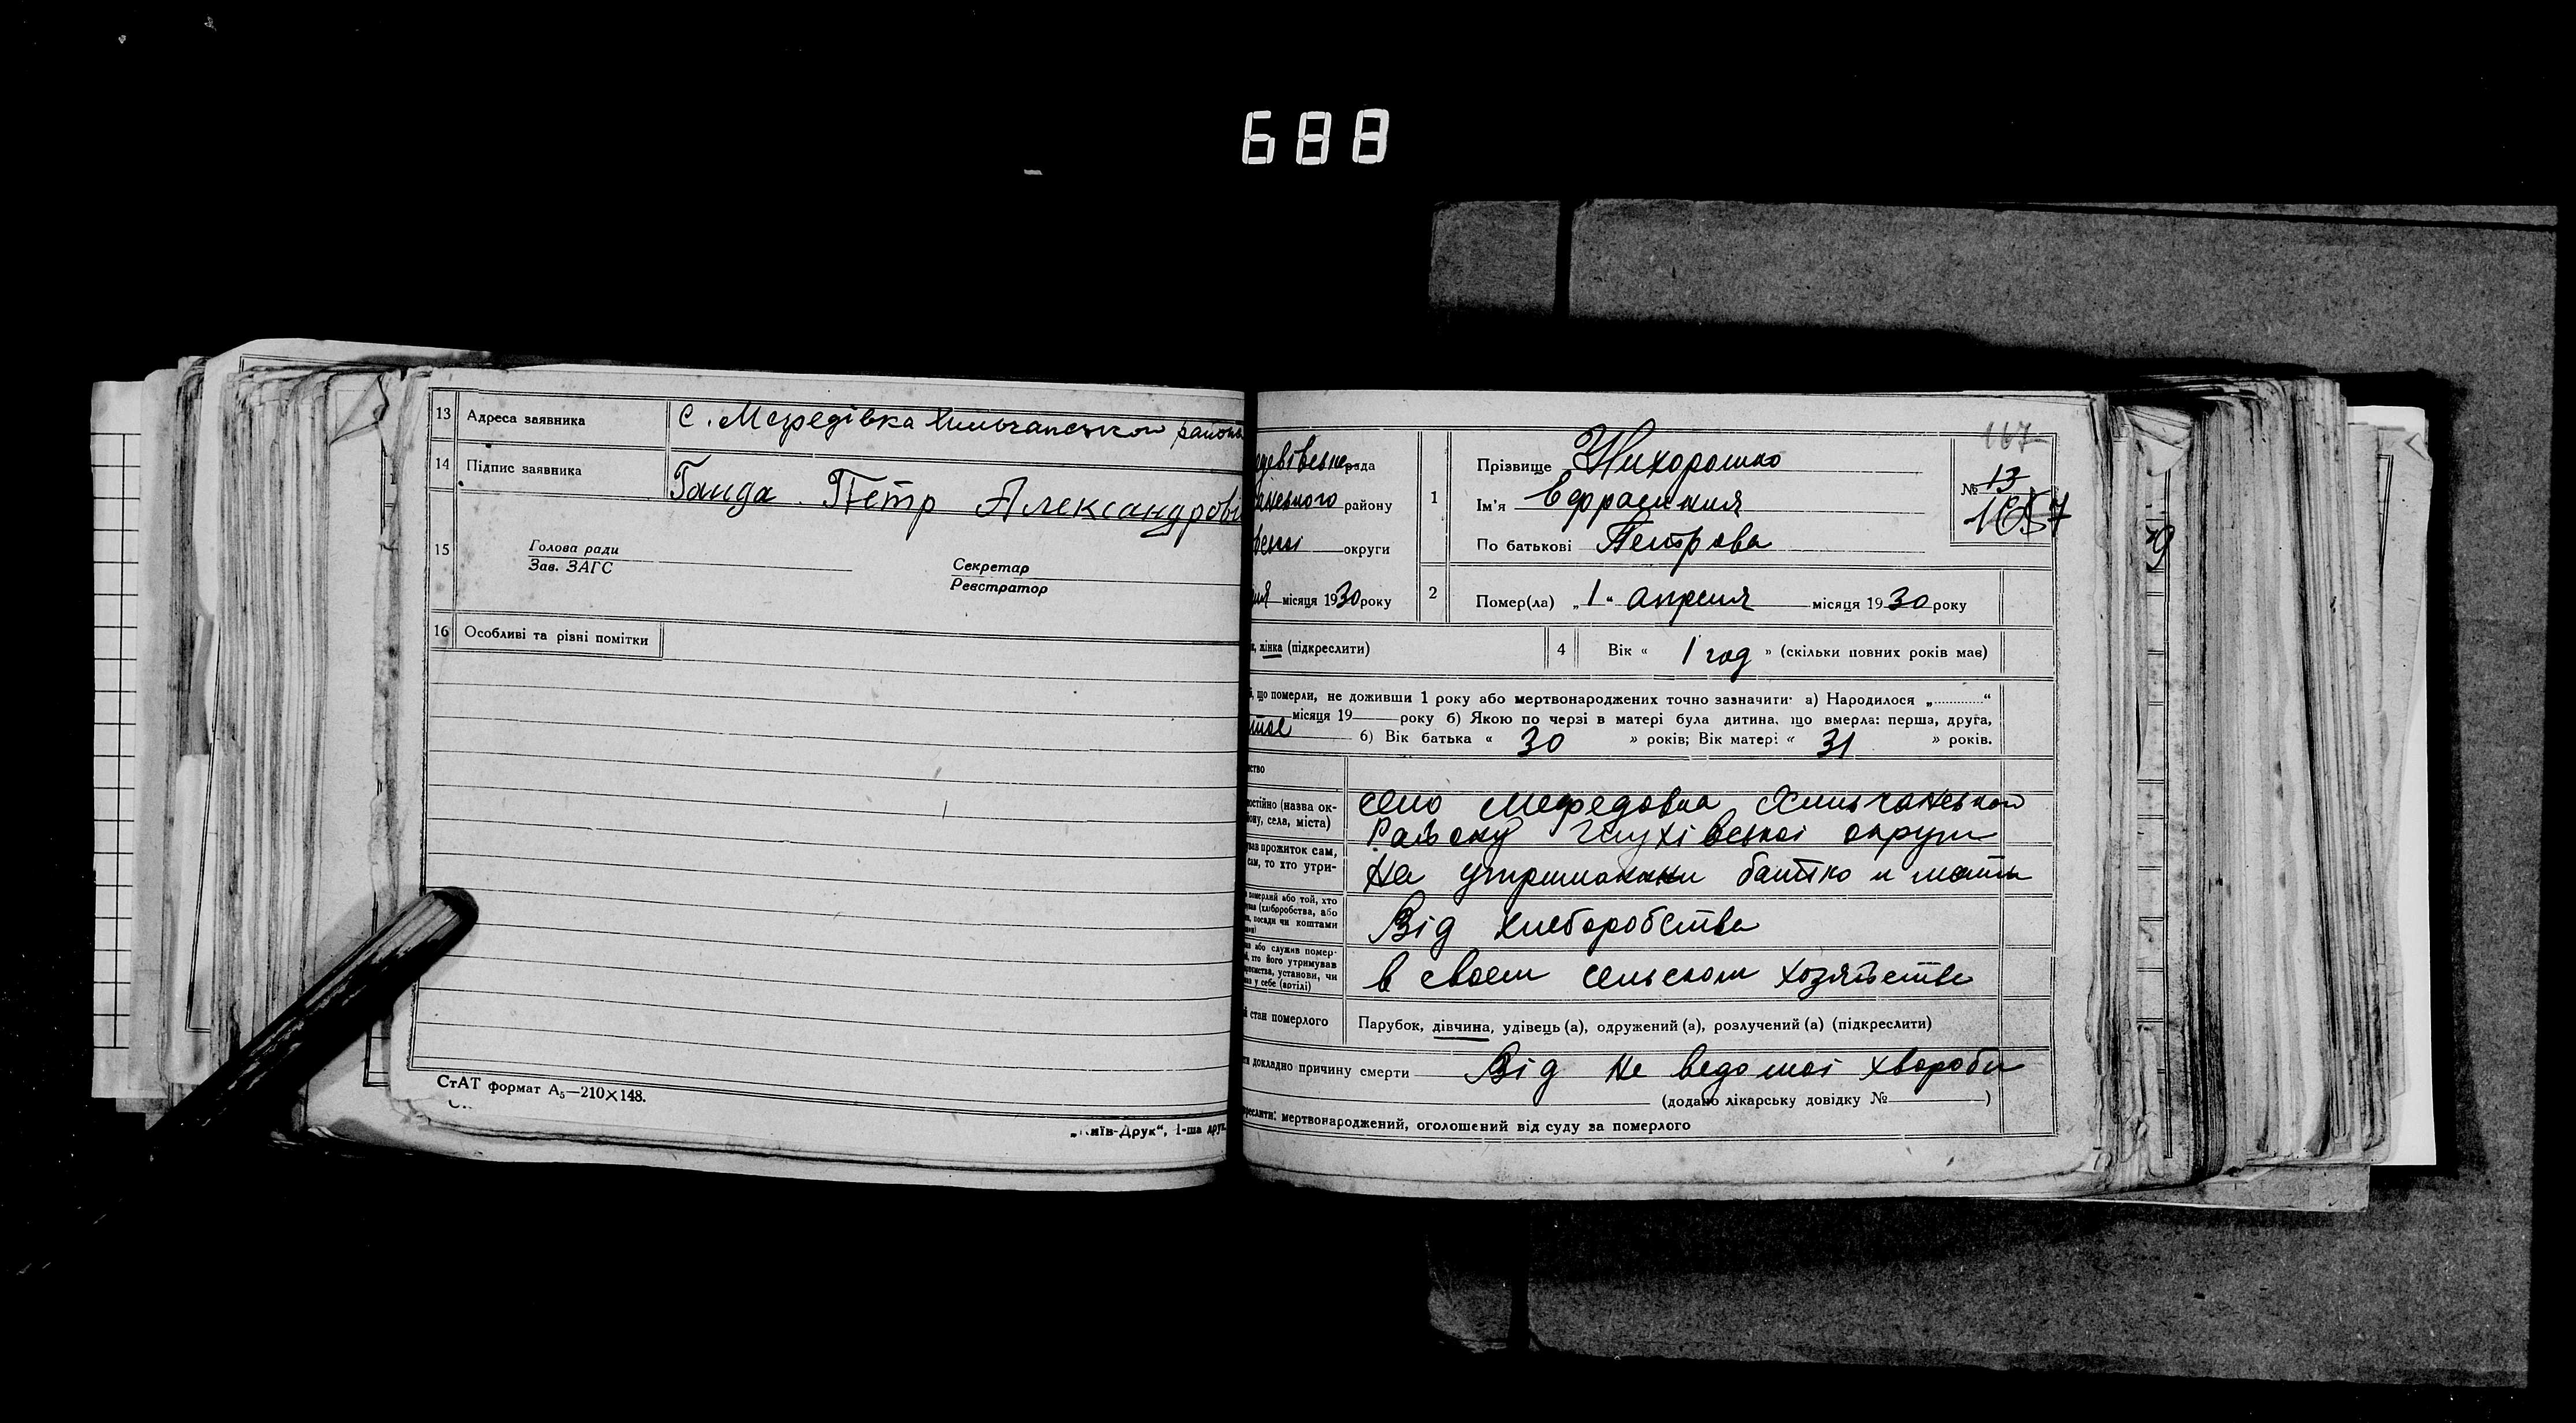 688
13 Адреса заявника С. Мефедівка Хильчанськой району
14 Підпис заявника Ганда Петр Александрові
15 Голова ради
Зав. ЗАГС
Секретар
Реєстратор
16 Особливі та різні помітки
СтАТ формат А₅—210×148.
„Київ-Друк“, 1-ша друк.
167
рада
району
округи
місяця 1930 року
1 Прізвище Нихорошко
Ім'я Ефрасиния
По батькові Петрова
№ 13
1657
2 Помер(ла) „1“ апреля місяця 1930 року
жінка (підкреслити)
4 Вік « 1 год » (скільки повних років має)
що померли, не доживши 1 року або мертвонароджених точно зазначити: а) Народилося „............“
місяця 19 року б) Якою по черзі в матері була дитина, що вмерла: перша, друга,
6) Вік батька « 30 » років; Вік матері « 31 » років.
постійно (назва ок-
ону, села, міста)
село Мефедовка Хильчанськой
Району Глухівської округи
прожиток сам,
сам, то хто утри-
На утримании батько и мать
померлий або той, хто
(хлібробства, або
посади чи коштами
Від хлеборобства
або служив помер-
хто його утримував
установи, чи
у себе (артілі)
в своем сельском хозяйстве
стан померлого Парубок, дівчина, удівець (а), одружений (а), розлучений (а) (підкреслити)
докладно причину смерти Від не ведомої хвороби
(додано лікарську довідку № )
мертвонароджений, оголошений від суду за померлого